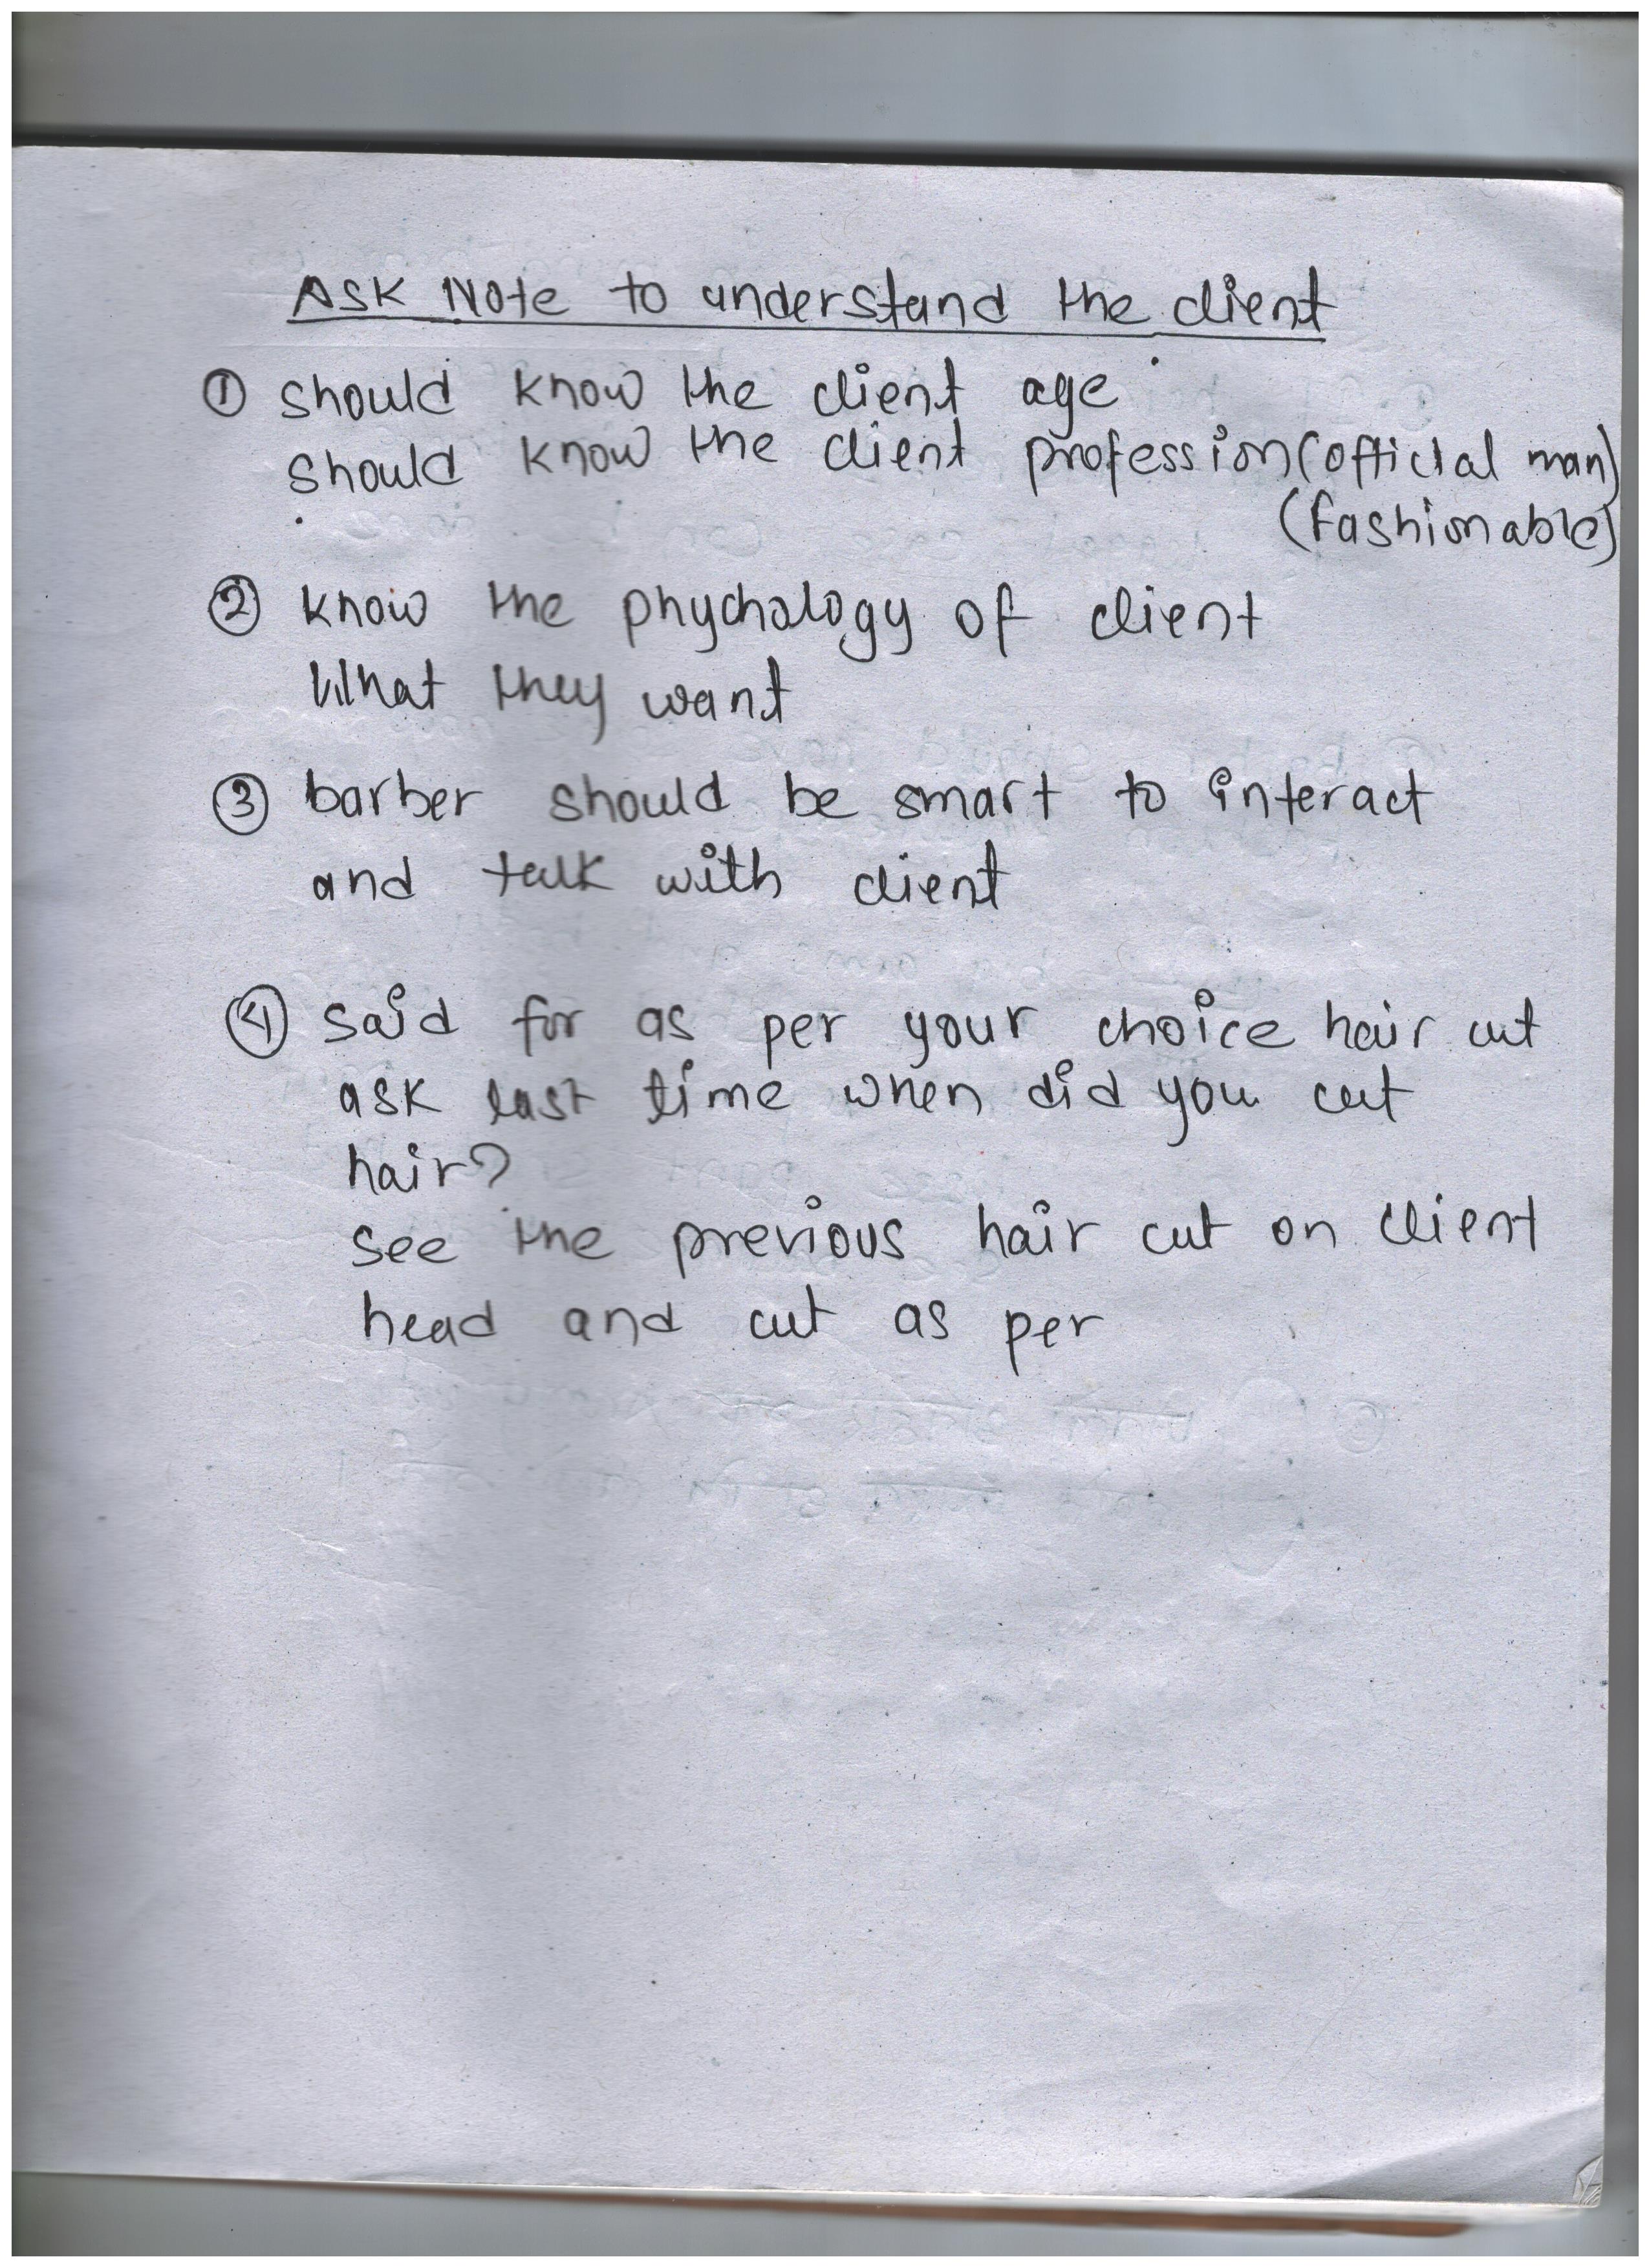 Ask Note to understand the client
① should know the client age
should know the client profession (official man)
(fashionable)
② know the phychology of client
What they want
③ barber should be smart to interact
and talk with client
④ said for as per your choice hair cut
ask last time when did you cut
hair?
see the previous hair cut on client
head and cut as per